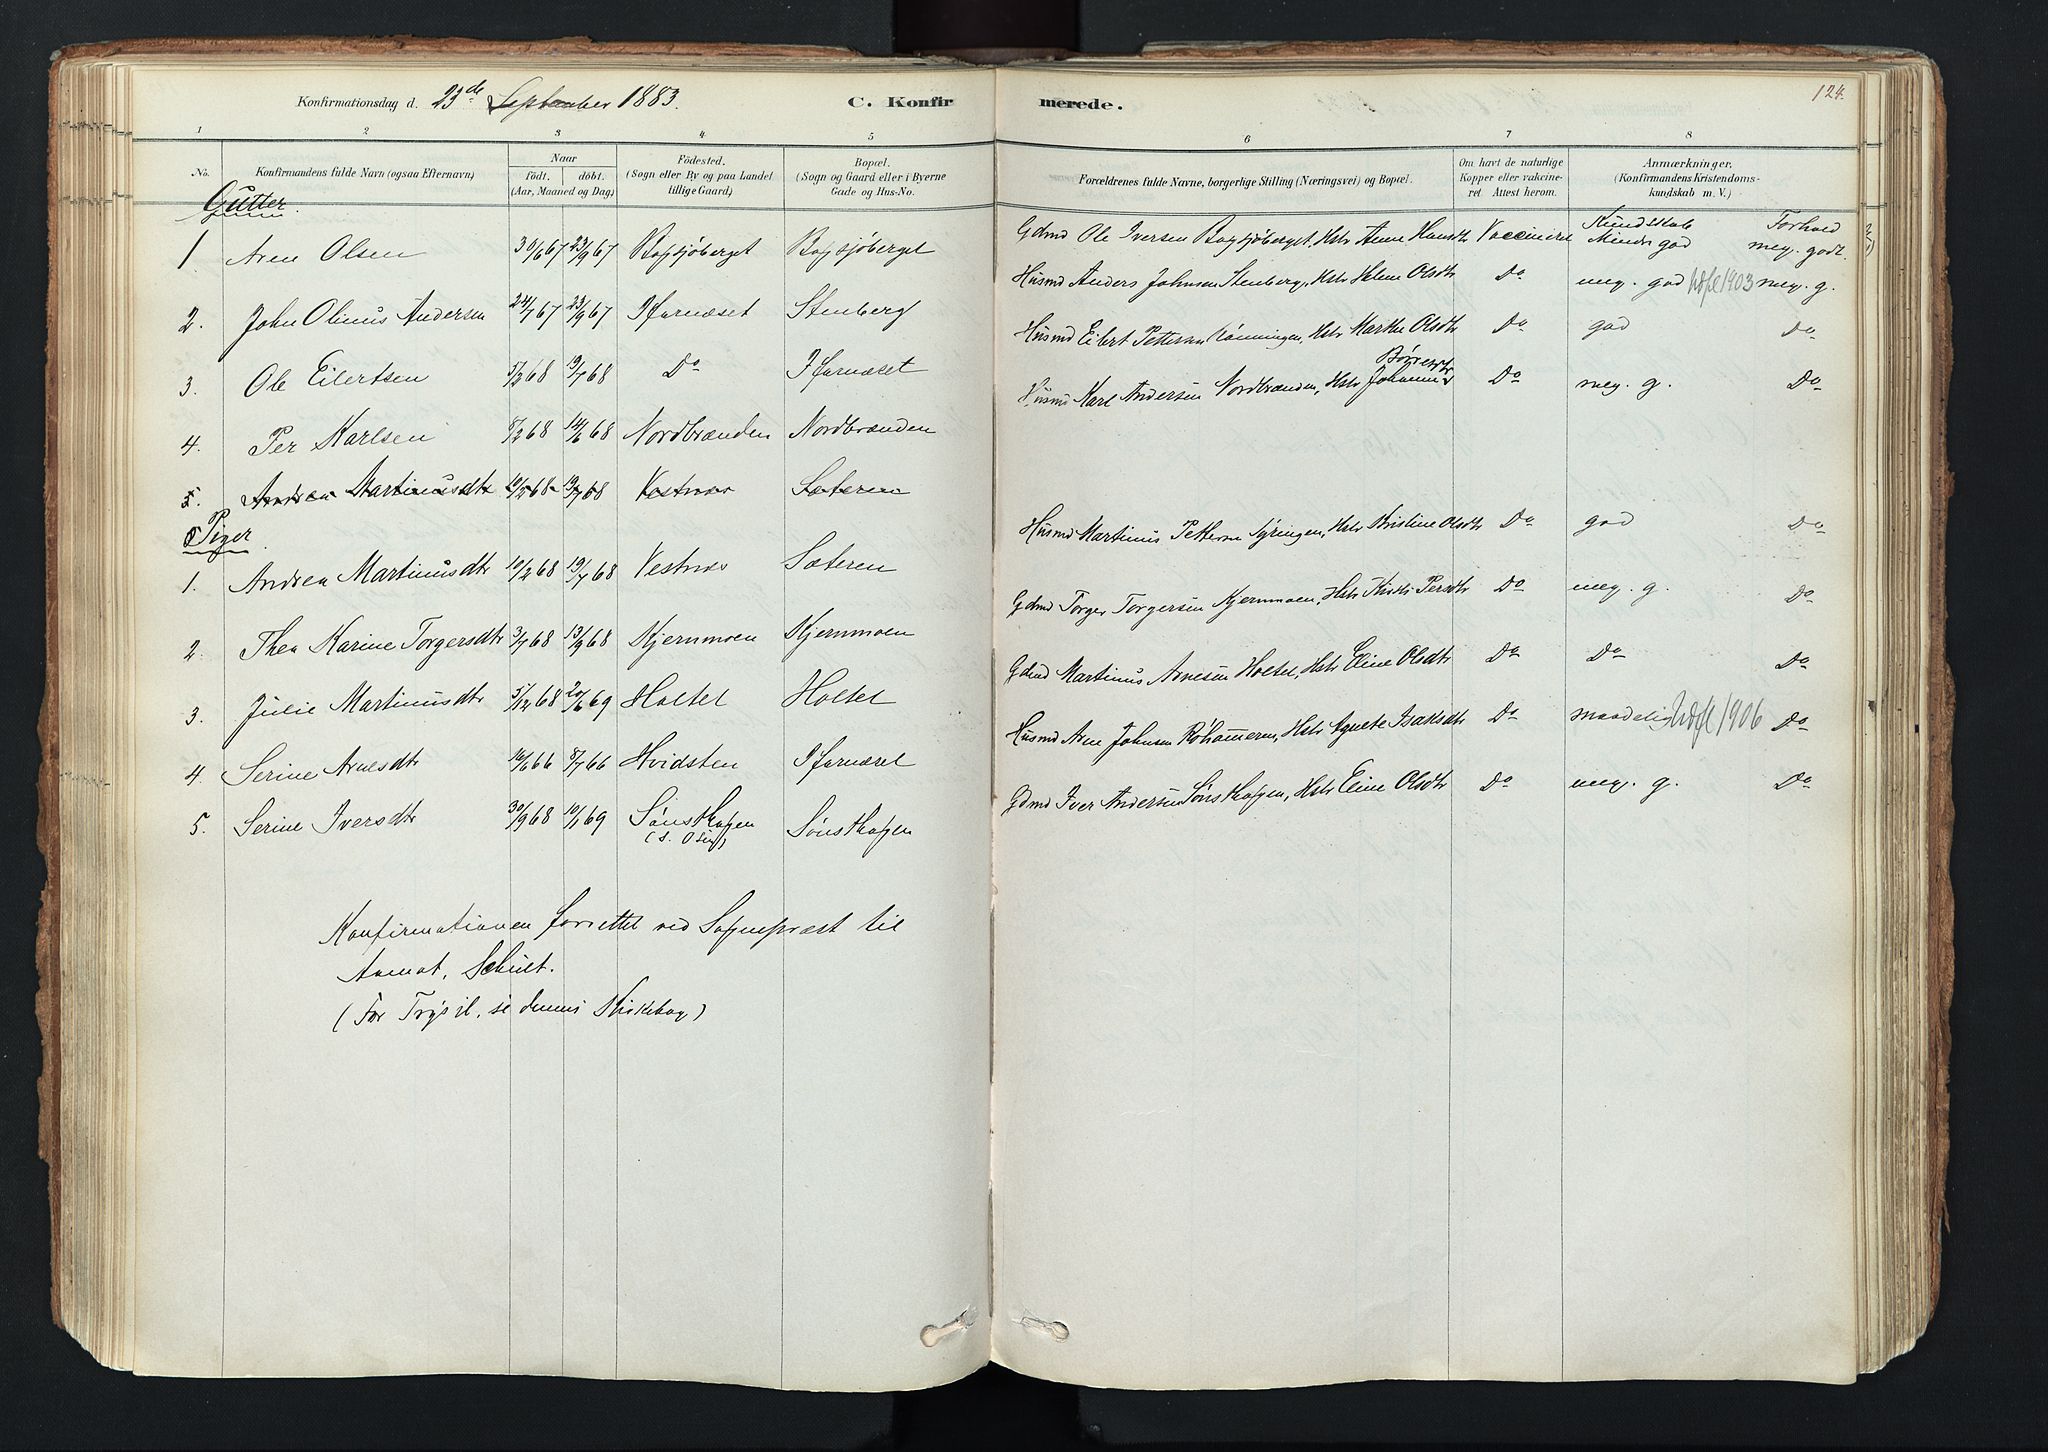 Konfirmationsdag d. 23de September 1883.
C. Konfirmerede.
124.
1 2 3 4 5 6 7 8
No.
Konfirmandens fulde Navn (ogsaa Efternavn)
Naar
født. døbt.
(Aar, Maaned og Dag)
Födested.
(Sogn eller By og paa Landet
tillige Gaard)
Bopæl.
(Sogn og Gaard eller i Byerne
Gade og Hus-No.
Forældrenes fulde Navne, borgerlige Stilling (Næringsvei) og Bopæl.
Om havt de naturlige
Kopper eller vakcine-
ret. Attest herom.
Anmærkninger.
(Konfirmandens Kristendoms-
kundskab m. V.)
Gutter.
Kundskab Forhold
1 Arne Olsen 30/6 67 23/9 67 Bagsjøberget Bagsjøberget Gdmd Ole Iversen Bagsjøberget, Hstr Anne Hansdtr Vaccineret Mindre god meg. godt.
2. John Olinus Andersen 24/7 67 23/9 67 Ifarnæset Stenberg Husmd Anders Johnsen Stenberg, Hstr Helene Olsdtr Do meg. god Udfl 1903 meg. g.
3. Ole Eilertsen 5/3 68 19/7 68 Do Ifarnæset Husmd Eilert Pettersen Rønningen, Hstr Marthe Olsdtr Do god Do
4. Per Karlsen 8/2 68 14/6 68 Nordbrænden Nordbrænden Husmd Karl Andersen Nordbrænden, Hstr Johanne Børresdtr Do meg. g. Do
5. Andrea Martinusdtr 10/2 68 19/7 68 Vestnæs Sæteren
Piger.
1. Andrea Martinusdtr 10/2 68 19/7 68 Vestnæs Sæteren Husmd Martinus Pettersen Kristine Olsdtr Do god Do
2. Thea Karine Torgersdtr 3/7 68 13/9 68 Kjernmoen Kjernmoen Gdmd Torger Torgersen Kjernmoen, Hstr Persdtr Do meg. g. Do
3. Julie Martinusdtr 5/12 68 20/6 69 Holtet Holtet Gdmd Martinus Arnesen Holtet, Hstr Eline Olsdtr Do Do Do
4. Serine Arnesdtr 16/6 66 8/7 66 Hvidsten Ifarnæset Husmd Arne Johnsen Hstr Agnete Isaksdtr Do maadelig Udfl 1906 Do
5. Serine Iversdtr 30/9 68 10/1 69 Sønskagen Sønskagen Gdmd Iver Andersen Sønskagen, Hstr Eline Olsdtr Do meg. g. Do
Konfirmationen forrettet ved Sognepræst til
Aamot, Schult.
(For Trysil, se dennes Kirkebog)